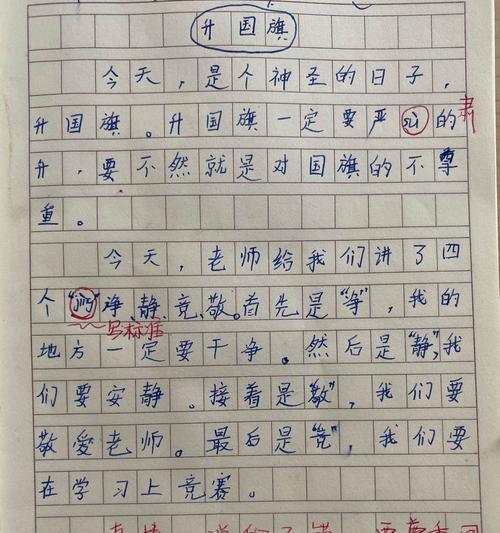 升国旗
今天，是个神圣的日子，
升国旗。升国旗一定要严的肃
升，要不然就是对国旗的不尊
重。
今天，老师给我们讲了四
个"净静竞、敬。首先是"净"，我的
写标准
地方一定要干净。然后是"静"，我
们要安静。接着是"敬"，我们要
敬爱老师。最后是"竞"，我们要
在学习上竞赛。